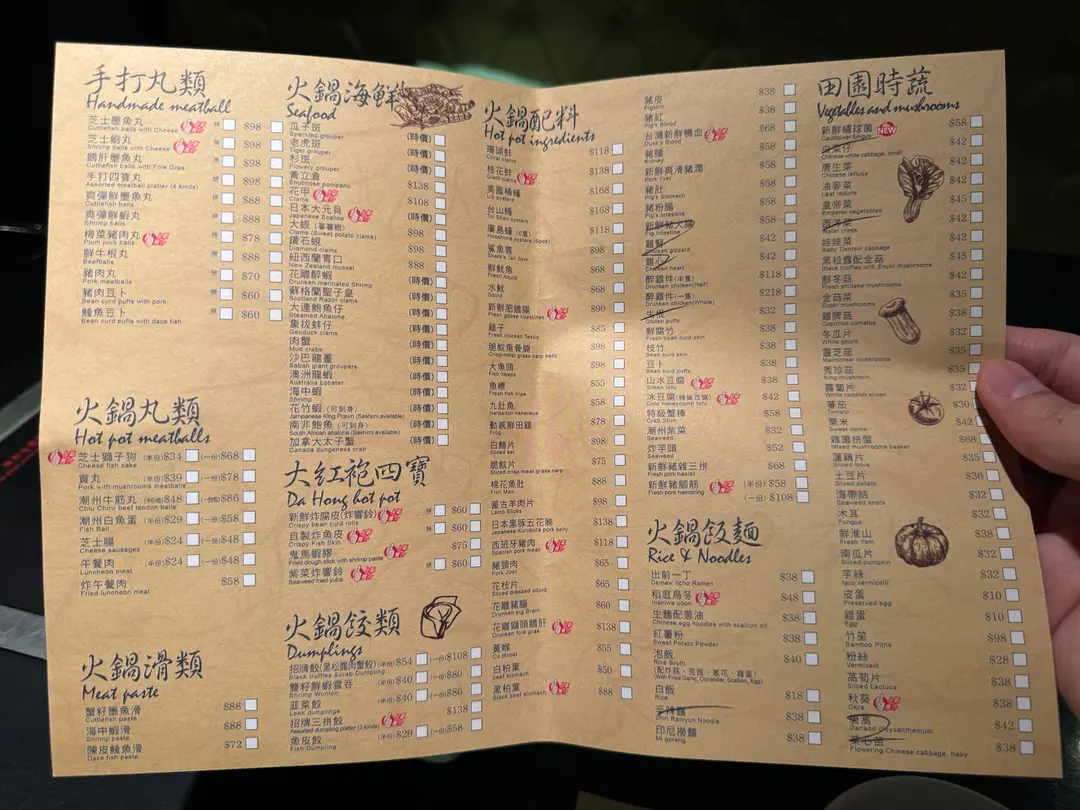 手打丸類
Handmade meatball
芝士墨魚丸 $98
Cuttlefish balls with Cheese
芝士蝦丸 $98
Shrimp balls with Cheese
鵝肝墨魚丸 $98
Cuttlefish balls with Foie Gras
手打四寶丸 $98
Assorted meatball platter (4 kinds)
爽彈鮮墨魚丸 $88
Cuttlefish balls
爽彈鮮蝦丸 $88
Shrimp balls
梅菜豬肉丸 $78
Plum pork balls
鮮牛根丸 $88
Beefballs
豬肉丸 $70
Pork meatballs
豬肉豆卜 $60
Bean curd puffs with pork
鯪魚豆卜 $60
Bean curd puffs with dace fish
火鍋丸類
Hot pot meatballs
芝士獅子狗 (半份)$34 (一份)$68
Cheese fish cake
貢丸 (半份)$39 (一份)$78
Pork with mushrooms meatballs
潮州牛筋丸 (半份)$48 (一份)$86
Chiu Chow beef tendon balls
潮州白魚蛋 (半份)$29 (一份)$58
Fish Ball
芝士腸 (半份)$24 (一份)$48
Cheese sausages
午餐肉 (半份)$24 (一份)$48
Luncheon meat
炸午餐肉 $58
Fried luncheon meat
火鍋滑類
Meat paste
蟹籽墨魚滑 $88
Cuttlefish paste
海中蝦滑 $88
Shrimp paste
陳皮鯪魚滑 $72
Dace fish paste
火鍋海鮮
Seafood
瓜子斑 (時價)
Speckled grouper
老虎斑 (時價)
Tiger grouper
杉斑 (時價)
Flowery grouper
黃立倉 $138
Snubnose pompano
花甲 $108
Clams
日本大元貝 (時價)
Japanese Scallop
大蜆 (蕃薯蜆) $98
Clams (Sweet potato clams)
鑽石蜆 $98
Diamond clams
紐西蘭青口 $88
New Zealand mussel
花雕醉蝦 (時價)
Drunken marinated Shrimp
蘇格蘭聖子皇 (時價)
Scotland Razor clams
大連鮑魚仔 (時價)
Steamed Abalone
象拔蚌仔 (時價)
Geoduck clams
肉蟹 (時價)
Mud crabs
沙巴龍躉 (時價)
Sabah giant groupers
澳洲龍蝦 (時價)
Australia Lobster
海中蝦 (時價)
Shrimp
花竹蝦 (可刺身) (時價)
Jampanese King Prawn (Sashimi available)
南非鮑魚 (可刺身) (時價)
South African abalone (Sashimi available)
加拿大太子蟹 (時價)
Canada dungeness crab
大紅袍四寶
Da Hong hot pot
新鮮炸腐皮(炸響鈴) $60
Crispy bean curd rolls
自製炸魚皮 $60
Crispy Fish Skin
鬼馬蝦膠 $75
Fried dough stick with shrimp paste
紫菜炸響鈴 $60
Seaweed fried yuba
火鍋餃類
Dumplings
招牌餃(黑松露肉蟹餃) (半份)$54 (一份)$108
Black truffles & crab Dumpling
雙籽鮮蝦雲吞 (半份)$40 (一份)$80
Shrimp Wonton
韮菜餃 (半份)$40 (一份)$80
Leek dumplings
招牌三拼餃 $138
Assorted dumpling platter (3 kinds)
魚皮餃 (半份)$29 (一份)$58
Fish Dumpling
火鍋配料
Hot pot ingredients
珊瑚蚌 $118
Coral clams
桂花蚌 $138
Giant clams
美國桶蠔 $168
US oysters
台山蠔 $168
Tai Shan oysters
廣島蠔 (6隻) $118
Hiroshima oysters (6pcs)
鯊魚唇 $98
Shark's Tail Skin
鮮魷魚 $68
Fresh Squid
水魷 $68
Squid
新鮮肥鵝腸 $90
Fresh goose intestines
雞子 $85
Fresh chicken Testis
脆鯇魚骨腩 $98
Crisp meat glass carp belly
大魚頭 $88
Fish heads
魚櫻 $55
Fresh fish tripe
九肚魚 $58
Harbadon nehereus
動感鮮田雞 $98
Frog
白鱔片 $98
Sliced eel
脆鯇片 $75
Sliced crisp meat grass carp
棉花魚肚 $88
Fish Maw
蒙古羊肉片 $98
Lamb slices
日本黑豚五花腩 $138
Japanese Kurobota pork belly
西班牙豬肉 $118
Spanish pork meat
豬頸肉 $65
Pork Jowl
花枝片 $65
Sliced dressed squid
花雕豬腦 $60
Drunken pig Brain
花雕獅頭鵝肝 $138
Drunken foie gras
黃喉 $55
Ox throat
白柏葉 $50
beef stomach
黑柏葉 $88
Black beef stomach
豬皮 $38
Pigskin
豬紅 $38
Pig's Blood
台灣新鮮鴨血 $68
Duck's Blood
豬膶 $58
Kidney
新鮮爽滑豬潤 $58
Pork liver
豬肚 $58
Pig's Stomach
豬粉腸 $58
Pig's Intestine
新鮮豬大腸 $58
Pig Intestine
雞腎 $42
Chicken gizzard
雞心 $42
Chicken heart
醉雞件 (半隻) $118
Drunken chicken(Half)
醉雞件 (一隻) $218
Drunken chicken(Whole)
生根 $32
Gluten puffs
鮮腐竹 $38
Fresh bean curd skin
枝竹 $38
Bean curd skin
豆卜 $38
Bean curd puffs
山水豆腐 $38
Silken tofu
冰豆腐(蜂巢豆腐) $42
Cold honeycomb tofu
特級蟹棒 $58
Crab Stick
潮州紫菜 $32
Seaweed
炸芋頭 $52
Seaweed
新鮮豬雜三拼 $68
Fresh pork haslet
新鮮豬腳筋 (半份) $58
Fresh pork hamstring
(一份) $108
火鍋飯麵
Rice & Noodles
出前一丁 $38
Demaw Itcho Ramen
稻庭烏冬 $48
Inaniwa udon
生麵配蔥油 $38
Chinese egg noodles with scallion oil
紅薯粉 $38
Sweet Potato Powder
泡飯 $40
Rice Broth
(配炸蒜、芫茜、蔥花、雞蛋)
(With Fried Garlic, Coriander, Scallion, Egg)
白飯 $18
Rice
辛辣麵 $38
Shin Ramyun Noodle
印尼撈麵 $38
Mi goreng
田園時蔬
Vegetables and mushrooms
新鮮繡球菌 NEW $58
Cauliflower fungus
白菜仔 $42
Chinese white cabbage, small
唐生菜 $42
Chinese lettuce
油麥菜 $42
Leaf lettuce
皇帝菜 $45
Emperor vegetables
西洋菜 $42
Water cress
娃娃菜 $42
Baby Tiantsin cabbage
黑松露配金菇 $45
Black truffles with Enoki mushrooms
鮮冬菇 $42
Fresh shiitake mushrooms
金菇菜 $35
Super mushrooms
雞髀菇 $38
Coprinus comatus
冬瓜片 $32
White gourd
靈芝菇 $35
Marmoreal mushrooms
秀珍菇 $35
King mushroom
蘿蔔片 $32
White raddish slices
蕃茄 $30
Tomato
粟米 $42
Sweet corns
雜菌拼盤 $68
Mixed mushrooms basket
蓮藕片 $35
Sliced lotus
土豆片 $30
Sliced potato
海帶結 $32
Seaweed knots
木耳 $32
Fungus
鮮淮山 $38
Fresh Yam
南瓜片 $32
Sliced pumpkin
芋絲 $32
taro vermicelli
皮蛋 $10
Preserved egg
雞蛋 $10
Egg
竹笙 $98
Bamboo Piths
粉絲 $28
Vermicelli
萵筍片 $38
Sliced Lactuca
秋葵 $38
Okra
茼蒿 $42
Garland chrysanthemum
菜心苗 $38
Flowering Chinese cabbage, baby